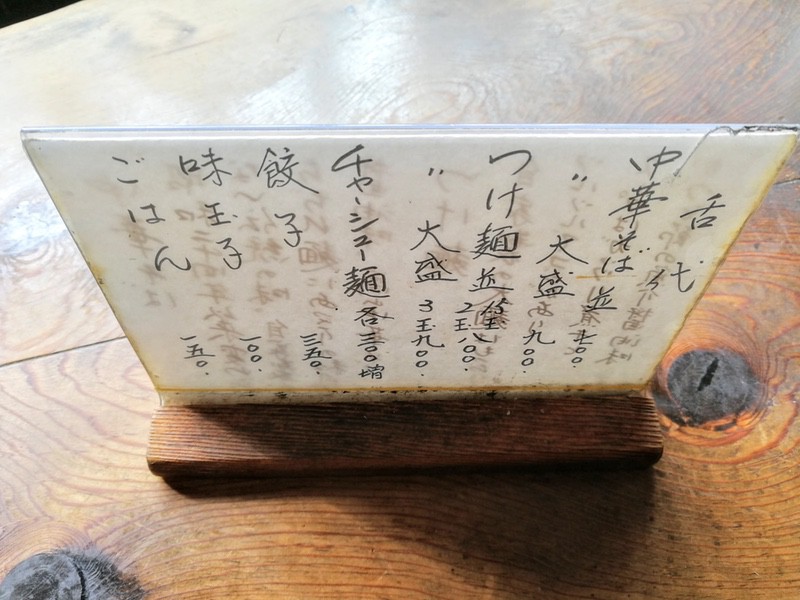 舌代
中華そば 並 七〇〇.
〃 大盛 九〇〇.
つけ麺 並 1.5玉 2玉 八〇〇.
〃 大盛 3玉 九〇〇.
チャーシュー麺 各三〇〇増
餃子 三五〇.
味玉子 一〇〇.
ごはん 一五〇.